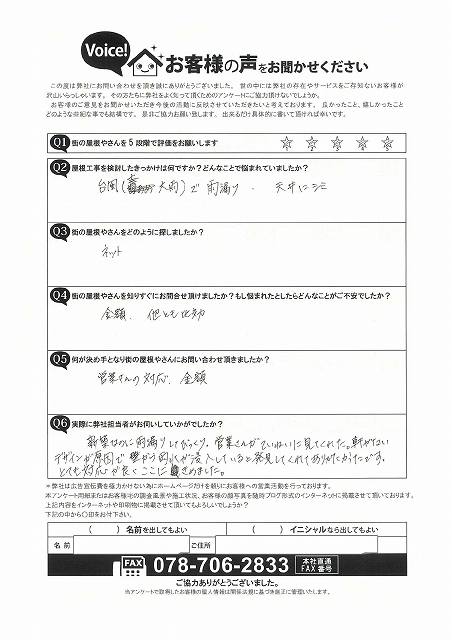 Voice! お客様の声をお聞かせください
この度は弊社にお問い合わせを頂き誠にありがとうございました。世の中には弊社の存在やサービスをご存知ないお客様が
沢山いらっしゃいます。その方たちに弊社をよく知って頂くためのアンケートにご協力頂けないでしょうか。
お客様のご意見をお聞かせいただき今後の活動に反映させていただきたいと考えております。良かったこと、嬉しかったこと
どのような些細な事でも結構です。是非ご協力お願い致します。出来るだけ具体的に書いて頂ければ幸いです。
Q1 街の屋根やさんを5段階で評価をお願いします
Q2 屋根工事を検討したきっかけは何ですか？どんなことで悩まれていましたか？
台風( 大雨)で雨漏り・天井にシミ
Q3 街の屋根やさんをどのように探しましたか？
ネット
Q4 街の屋根やさんを知りすぐにお問合せ頂けましたか？もし悩まれたとしたらどんなことがご不安でしたか？
金額、他とも比較
Q5 何が決め手となり街の屋根やさんにお問い合わせ頂きましたか？
営業さんの対応、金額
Q6 実際に弊社担当者がお伺いしていかがでしたか？
新築なのに雨漏りしてびっくり。営業さんがていねいに見てくれた。軒がない
デザインが原因で壁から雨水が浸入していると発見してくれてありがたかったです。
とても対応が良くここにきめました。
＊弊社は広告宣伝費を極力かけない為にホームページだけを頼りにお客様への営業活動を行っております。
本アンケート用紙またはお客様宅の調査風景や施工状況、お客様の顔写真を随時ブログ形式のインターネットに掲載させて頂いております。
上記内容をインターネットや印刷物に掲載させて頂いてもよろしいでしょうか？
下記の中から〇印をお付下さい。
（　）名前を出してもよい （　）イニシャルなら出してもよい
名前 ご住所
FAX 078-706-2833 本社直通FAX番号
ご協力ありがとうございました。
当アンケートで取得したお客様の個人情報は関係法規に基づき厳正に管理いたします。